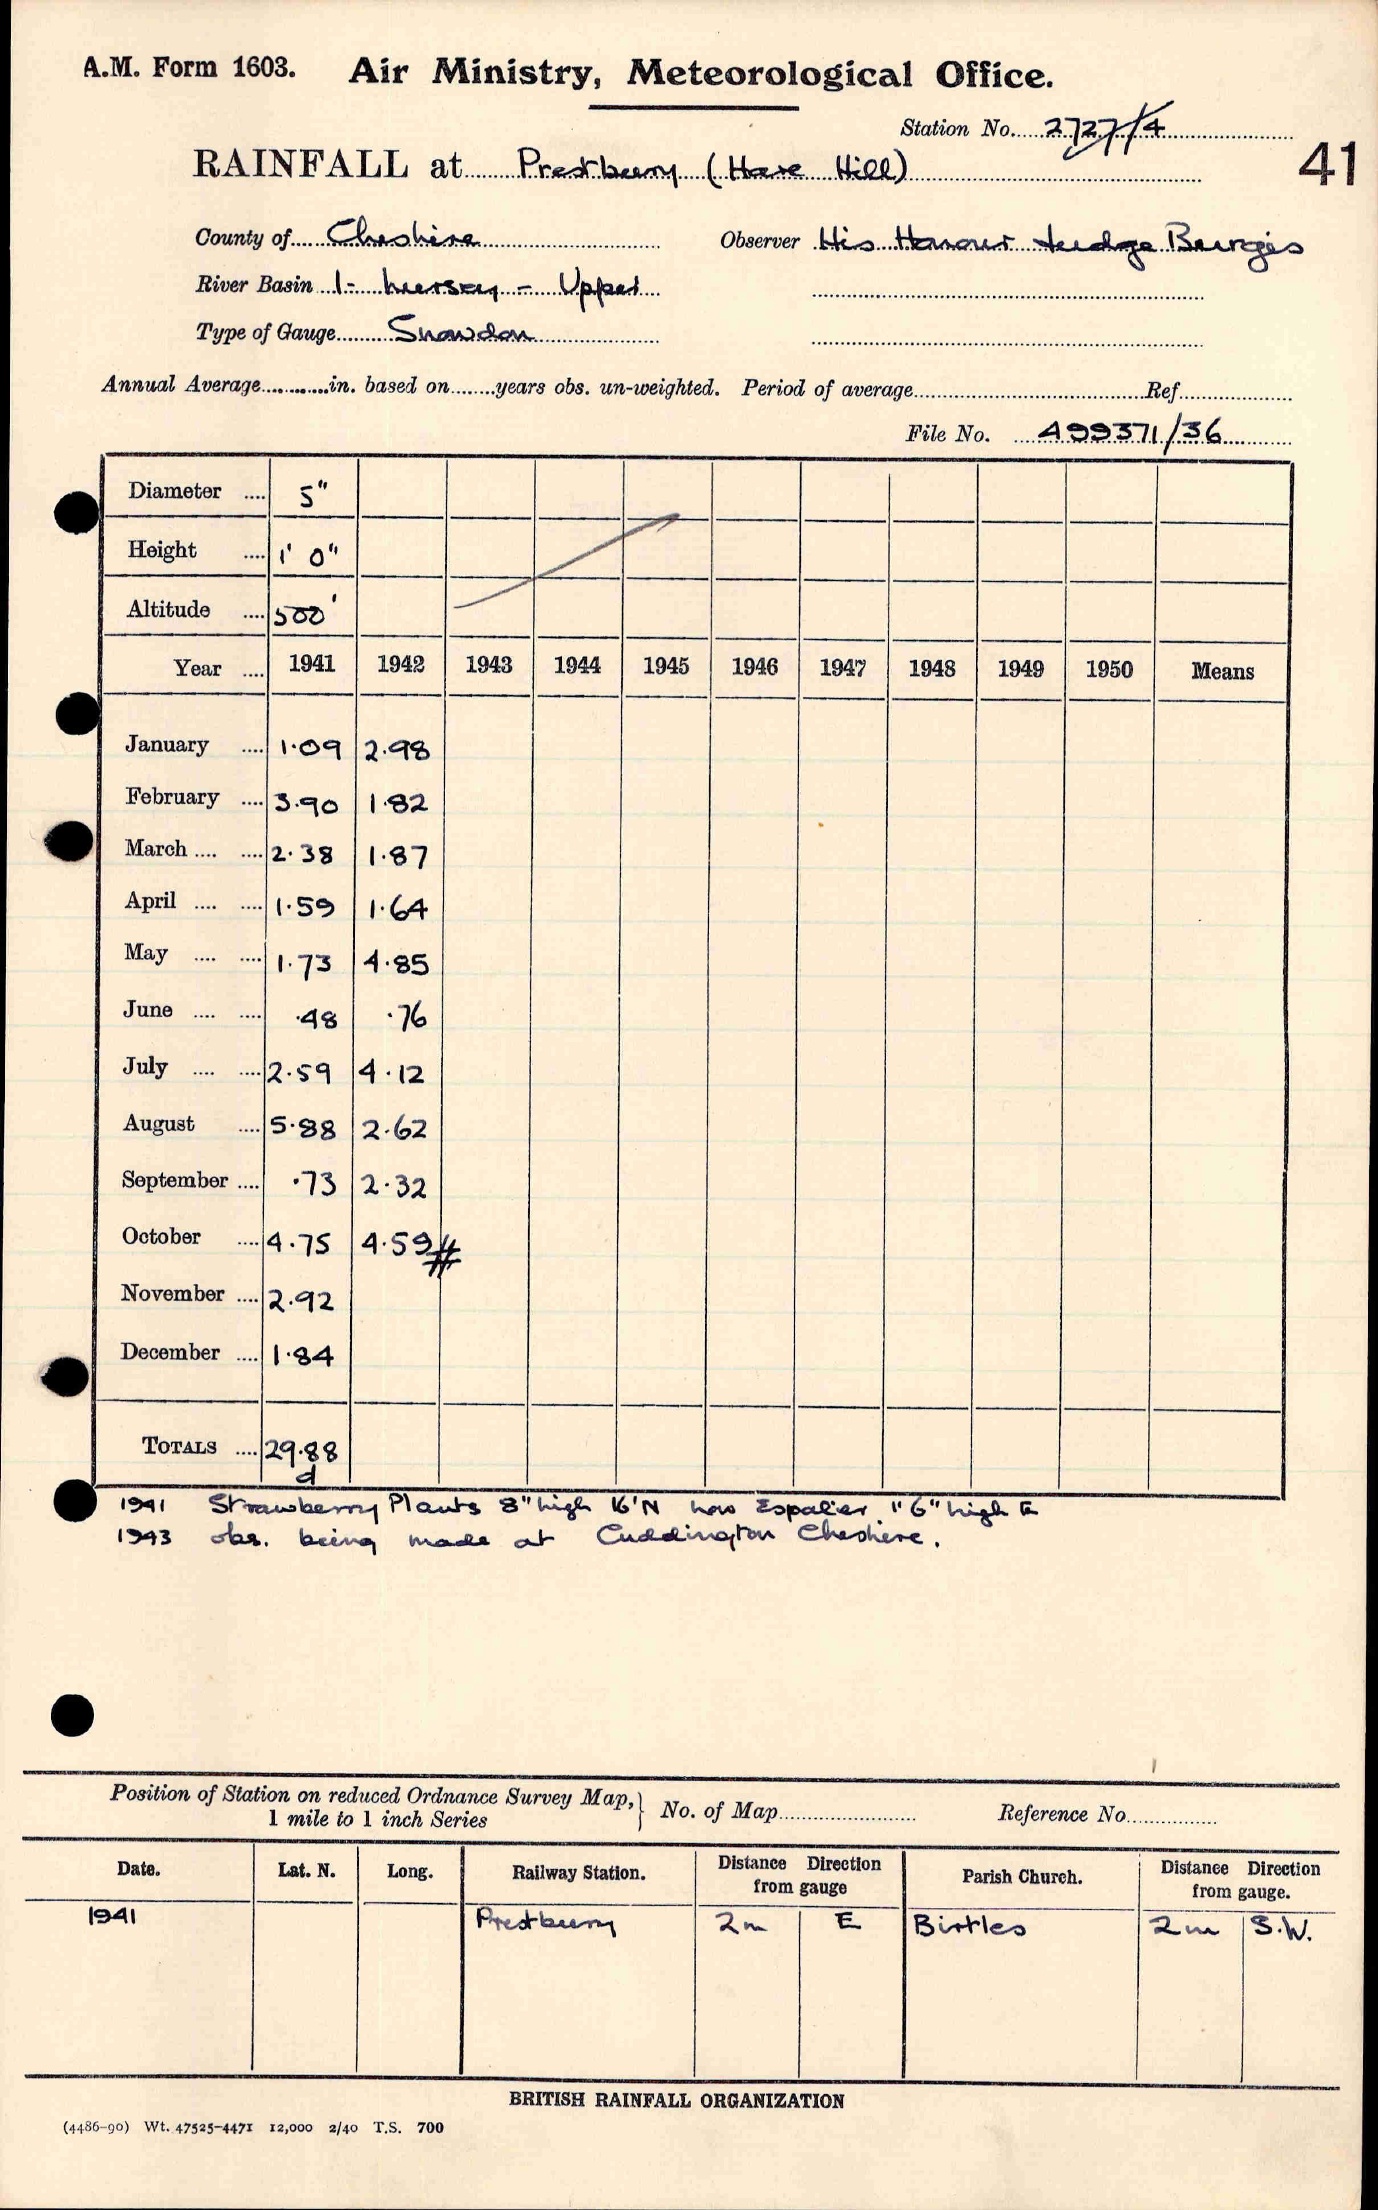 A.M. Form 1603. Air Ministry, Meteorological Office.
Station No. 2727/4
41
RAINFALL at Prestbury (Hare Hill)
County of Cheshire Observer His Honour Judge Burgis
River Basin 1- Mersey - Upper
Type of Gauge Snowdon
Annual Average in. based on years obs. un-weighted. Period of average Ref.
File No. A99371/36
Diameter 5"
Height 1' 0"
Altitude 500'
Year 1941 1942 1943 1944 1945 1946 1947 1948 1949 1950 Means
January 1.09 2.98
February 3.90 1.82
March 2.38 1.87
April 1.59 1.64
May 1.73 4.85
June .48 .76
July 2.59 4.12
August 5.88 2.62
September .73 2.32
October 4.75 4.59 #
November 2.92
December 1.84
TOTALS 29.88
d
1941 Strawberry Plants 8" high 16'N Espalier "6" high E
1943 obs. being made at Cuddington Cheshire.
Position of Station on reduced Ordnance Survey Map, } No. of Map Reference No.
1 mile to 1 inch Series
Date. Lat. N. Long. Railway Station. Distance Direction from gauge Parish Church. Distance Direction from gauge.
1941 Prestbury 2m E Birtles 2m S.W.
BRITISH RAINFALL ORGANIZATION
(4486-90) Wt. 47525-4471 12,000 2/40 T.S. 700